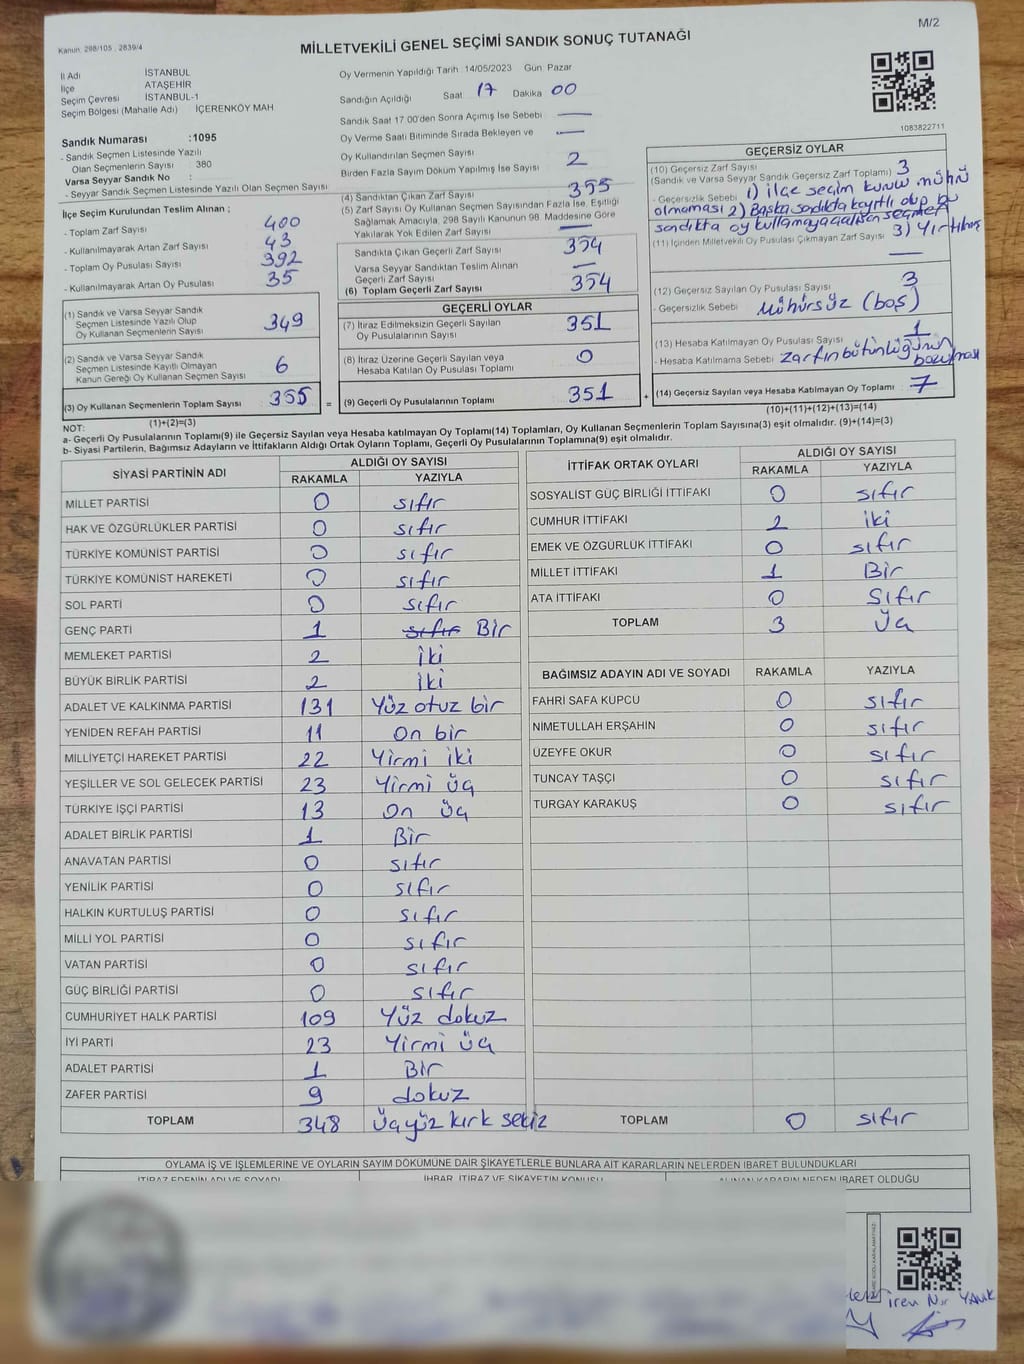 M/2
Kanun: 298/105 , 2839/4
MİLLETVEKİLİ GENEL SEÇİMİ SANDIK SONUÇ TUTANAĞI
İl Adı İSTANBUL
İlçe ATAŞEHİR
Seçim Çevresi İSTANBUL-1
Seçim Bölgesi (Mahalle Adı) İÇERENKÖY MAH
Sandık Numarası :1095
- Sandık Seçmen Listesinde Yazılı
Olan Seçmenlerin Sayısı 380
Varsa Seyyar Sandık No :
- Seyyar Sandık Seçmen Listesinde Yazılı Olan Seçmen Sayısı
İlçe Seçim Kurulundan Teslim Alınan ;
- Toplam Zarf Sayısı 400
- Kullanılmayarak Artan Zarf Sayısı 43
- Toplam Oy Pusulası Sayısı 392
- Kullanılmayarak Artan Oy Pusulası 35
(1) Sandık ve Varsa Seyyar Sandık
Seçmen Listesinde Yazılı Olup
Oy Kullanan Seçmenlerin Sayısı 349
(2) Sandık ve Varsa Seyyar Sandık
Seçmen Listesinde Kayıtlı Olmayan
Kanun Gereği Oy Kullanan Seçmen Sayısı 6
(3) Oy Kullanan Seçmenlerin Toplam Sayısı 355
(1)+(2)=(3)
Oy Vermenin Yapıldığı Tarih :14/05/2023 Gün: Pazar
Sandığın Açıldığı Saat 17 Dakika 00
Sandık Saat 17:00'den Sonra Açımış İse Sebebi —
Oy Verme Saati Bitiminde Sırada Bekleyen ve —
Oy Kullandırılan Seçmen Sayısı
Birden Fazla Sayım Döküm Yapılmış İse Sayısı 2
(4) Sandıktan Çıkan Zarf Sayısı 355
(5) Zarf Sayısı Oy Kullanan Seçmen Sayısından Fazla İse, Eşitliği
Sağlamak Amacıyla, 298 Sayılı Kanunun 98. Maddesine Göre
Yakılarak Yok Edilen Zarf Sayısı —
Sandıkta Çıkan Geçerli Zarf Sayısı 354
Varsa Seyyar Sandıktan Teslim Alınan
Geçerli Zarf Sayısı —
(6) Toplam Geçerli Zarf Sayısı 354
GEÇERLİ OYLAR
(7) İtiraz Edilmeksizin Geçerli Sayılan
Oy Pusulalarının Sayısı 351
(8) İtiraz Üzerine Geçerli Sayılan veya
Hesaba Katılan Oy Pusulası Toplamı 0
= (9) Geçerli Oy Pusulalarının Toplamı 351 +
1083822711
GEÇERSİZ OYLAR
(10) Geçersiz Zarf Sayısı 3
(Sandık ve Varsa Seyyar Sandık Geçersiz Zarf Toplamı)
- Geçersizlik Sebebi 1) ilçe seçim kurulu mührü
olmaması 2) Başka sandıkta kayıtlı olup bu
sandıkta oy kullamayacak olan seçmen
3) Yırtılmış
(11) İçinden Milletvekili Oy Pusulası Çıkmayan Zarf Sayısı —
(12) Geçersiz Sayılan Oy Pusulası Sayısı 3
- Geçersizlik Sebebi mühürsüz (boş)
(13) Hesaba Katılmayan Oy Pusulası Sayısı 1
- Hesaba Katılmama Sebebi zarfın bütünlüğünün
bozulması
(14) Geçersiz Sayılan veya Hesaba Katılmayan Oy Toplamı 7
(10)+(11)+(12)+(13)=(14)
NOT:
a- Geçerli Oy Pusulalarının Toplamı(9) ile Geçersiz Sayılan veya Hesaba katılmayan Oy Toplamı(14) Toplamları, Oy Kullanan Seçmenlerin Toplam Sayısına(3) eşit olmalıdır. (9)+(14)=(3)
b- Siyasi Partilerin, Bağımsız Adayların ve İttifakların Aldığı Ortak Oyların Toplamı, Geçerli Oy Pusulalarının Toplamına(9) eşit olmalıdır.
SİYASİ PARTİNİN ADI ALDIĞI OY SAYISI
RAKAMLA YAZIYLA
MİLLET PARTİSİ 0 sıfır
HAK VE ÖZGÜRLÜKLER PARTİSİ 0 sıfır
TÜRKİYE KOMÜNİST PARTİSİ 0 sıfır
TÜRKİYE KOMÜNİST HAREKETİ 0 sıfır
SOL PARTİ 0 sıfır
GENÇ PARTİ 1 sıfır Bir
MEMLEKET PARTİSİ 2 iki
BÜYÜK BİRLİK PARTİSİ 2 iki
ADALET VE KALKINMA PARTİSİ 131 Yüz otuz bir
YENİDEN REFAH PARTİSİ 11 On bir
MİLLİYETÇİ HAREKET PARTİSİ 22 Yirmi iki
YEŞİLLER VE SOL GELECEK PARTİSİ 23 Yirmi üç
TÜRKİYE İŞÇİ PARTİSİ 13 On üç
ADALET BİRLİK PARTİSİ 1 Bir
ANAVATAN PARTİSİ 0 sıfır
YENİLİK PARTİSİ 0 sıfır
HALKIN KURTULUŞ PARTİSİ 0 sıfır
MİLLİ YOL PARTİSİ 0 sıfır
VATAN PARTİSİ 0 sıfır
GÜÇ BİRLİĞİ PARTİSİ 0 sıfır
CUMHURİYET HALK PARTİSİ 109 Yüz dokuz
İYİ PARTİ 23 Yirmi üç
ADALET PARTİSİ 1 Bir
ZAFER PARTİSİ 9 dokuz
TOPLAM 348 üçyüz kırk sekiz
İTTİFAK ORTAK OYLARI ALDIĞI OY SAYISI
RAKAMLA YAZIYLA
SOSYALİST GÜÇ BİRLİĞİ İTTİFAKI 0 sıfır
CUMHUR İTTİFAKI 2 iki
EMEK VE ÖZGÜRLÜK İTTİFAKI 0 sıfır
MİLLET İTTİFAKI 1 Bir
ATA İTTİFAKI 0 Sıfır
TOPLAM 3 üç
BAĞIMSIZ ADAYIN ADI VE SOYADI RAKAMLA YAZIYLA
FAHRİ SAFA KÜPCÜ 0 sıfır
NİMETULLAH ERŞAHİN 0 sıfır
ÜZEYFE OKUR 0 sıfır
TUNCAY TAŞÇI 0 sıfır
TURGAY KARAKUŞ 0 sıfır
TOPLAM 0 sıfır
OYLAMA İŞ VE İŞLEMLERİNE VE OYLARIN SAYIM DÖKÜMÜNE DAİR ŞİKAYETLERLE BUNLARA AİT KARARLARIN NELERDEN İBARET BULUNDUKLARI
İTİRAZ EDENİN ADI VE SOYADI İHBAR, İTİRAZ VE ŞİKAYETİN KONUSU ALINAN KARARIN NEDEN İBARET OLDUĞU
İrem Nur YANIK